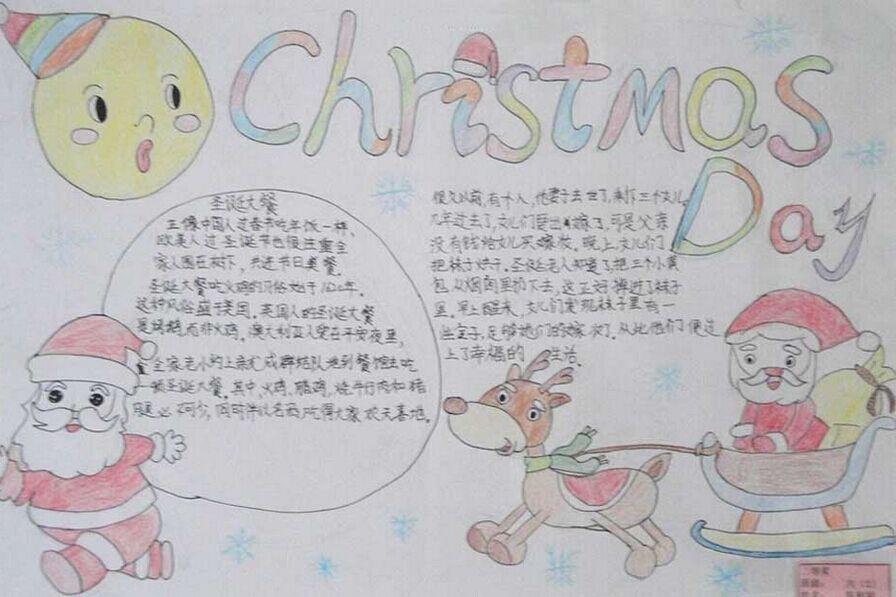 Christmas
Day
圣诞大餐
正像中国人过春节吃年饭一样,
欧美人过圣诞节也很注重全
家人围在树下,共进节日美餐.
圣诞大餐吃火鸡的习俗始于1620年.
这种风俗盛于美国.英国人的圣诞大餐
是烤鹅,而非火鸡.澳大利亚人爱在平安夜里,
全家老小约上亲友成群结队地到餐馆去吃
一顿圣诞大餐.其中,火鸡、腊鸡、烧牛仔肉和猪
腿必不可少,同时伴以名酒,吃得大家欢天喜地.
很久以前,有个人,他妻子去世了,剩下三个女儿,
几年过去了,女儿们要出嫁了,可是父亲
没有钱给女儿买嫁妆,晚上,女儿们
把袜子烘干.圣诞老人知道了,把三个小黄
包从烟囱里扔下去,这正好掉进了袜子
里.早上醒来,女儿们发现袜子里有一
些金子,足够她们的嫁妆了.从此他们便过
上了幸福的生活.
二等奖
班级: 六(2)
姓名: